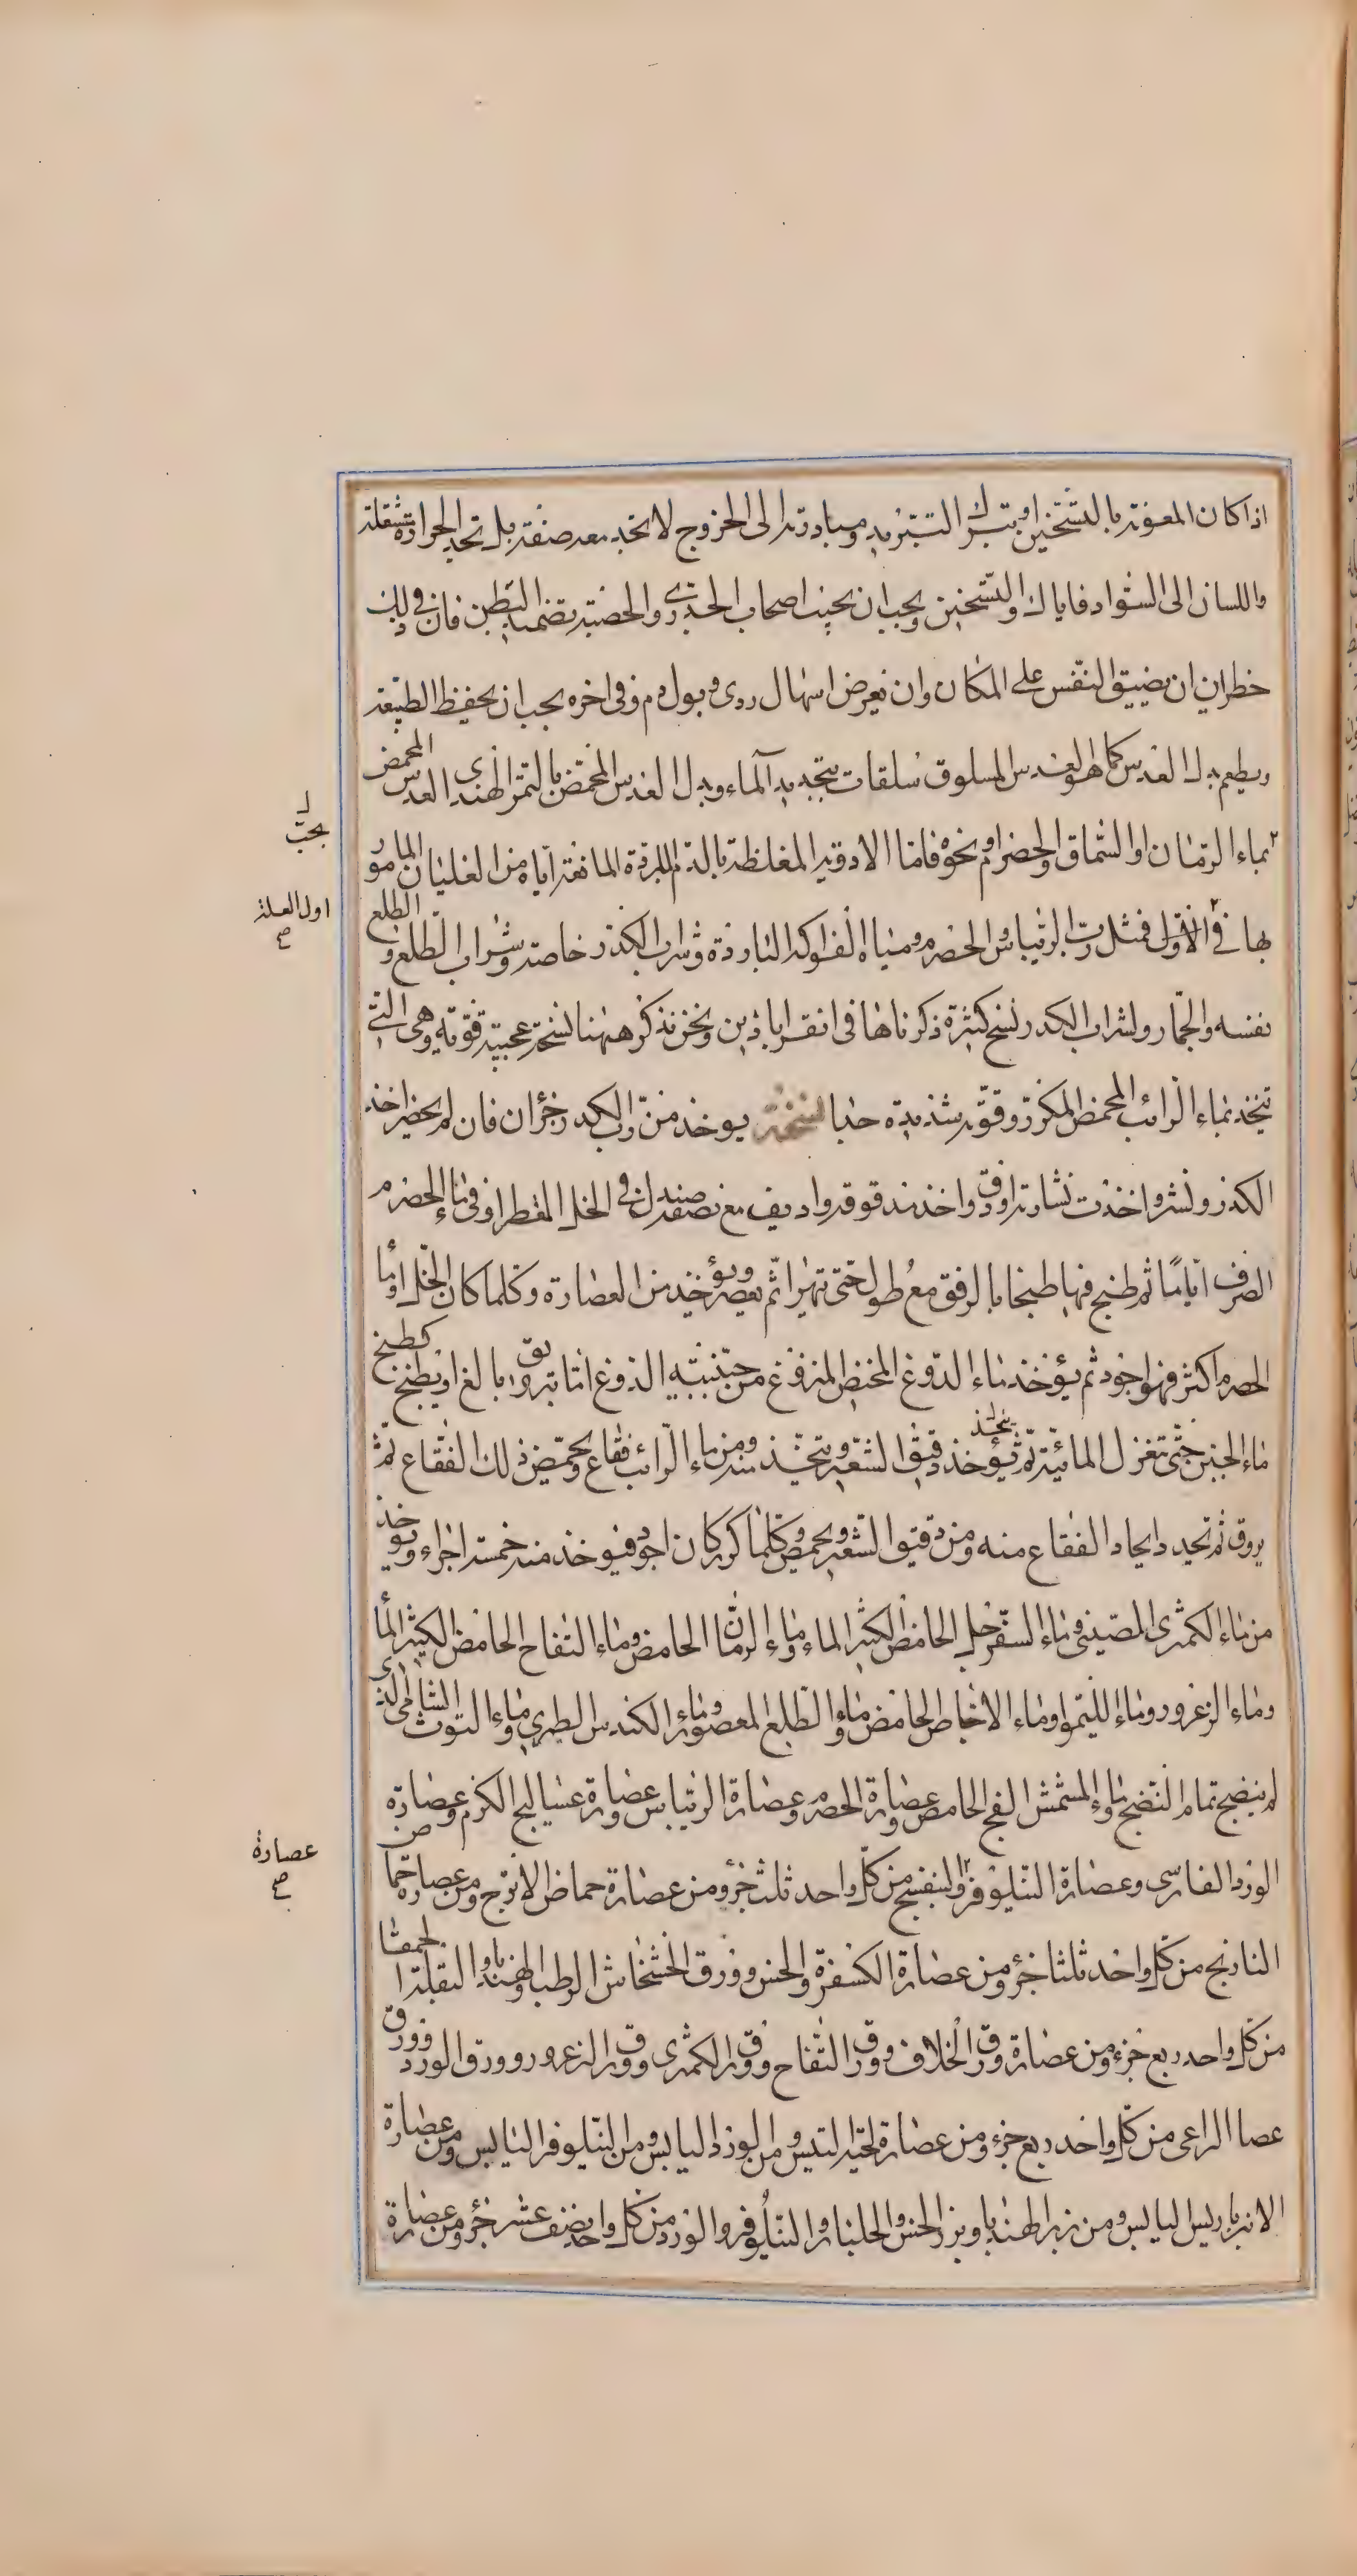 اذا كان المعونة بالتسخين او بترك التبريد ومبادرته الى الخروج لا تجد معه صنفة بل تجد الحرارة مشتعلة
واللسان الى السواد فاياك والتسخين ويجب ان يجنب اصحاب الجدرى والحصبة تضميد البطن فان فى ذلك
خطران ان يضيق النفس على المكان وان يعرض اسهال ردى وبول دم وفى اخره يجب ان يحفظ الطبيعة
ويطعم بدل العدس كما هو العدس المسلوق سلقات بتجديد الماء وبدل العدس المحمض بالتمر الهندى العدس المحمض
بماء الرمان او السماق او الحصرم ونحوه فاما الادوية المغلظة بالدم المبردة المانعة اياه من الغليان المامور
بها فى الاول فمثل رب الريباس والحصرم ومياه الفواكه الباردة وشراب الكدر خاصة وشراب الطلع والطلع
نفسه والجمار ولشراب الكدر نسخ كثيرة ذكرناها فى اقراباذين ونحن نذكر ههنا نسخة عجيبة قوية وهى التى
تتخذ بماء الرائب المحمض المكرر وقوته شديدة جدا نسخة يوخذ من رب الكدر جزآن فان لم يحضر اخذ
الكدر ونشر واخذت نشارته او دق واخذ مدقوقه واديف مع نصفه صندل فى الخل المقطر او فى ماء الحصرم
الصرف اياما ثم طبخ فيها طبخا بالرفق مع طول حتى تهرا ثم يعصر ويؤخذ من العصارة وكلما كان الخل او ماء
الحصرم اكثر فهو اجود ثم يؤخذ ماء الدوغ المخيض المنزوع من جبنيته الذوغ اما بترويق بالغ او بطبخ كطبخ
ماء الجبن حتى تعزل المائية ثم يؤخذ دقيق الشعير ويتخذ منه ومن ماء الرائب فقاع ويحمض ذلك الفقاع ثم
يروق ثم يجدد ايجاد الفقاع منه ومن دقيق الشعير ويحمض وكلما كرر كان اجود فيوخذ منه خمسة اجزاء ويوخذ
من ماء الكمثرى الصينى وماء السفرجل الحامض الكثير الماء وماء الرمان الحامض وماء التفاح الحامض الكثير الماء
وماء الزعرور وماء الليمو وماء الاجاص الحامض وماء الطلع المعصور وماء الكندس الطرى وماء التوث الشامى الذى
لم ينضج تمام النضج وماء المشمش الفج الحامض وعصارة الحصرم وعصارة الريباس وعصارة عساليج الكرم وعصارة
الورد الفارسى وعصارة النيلوفر والبنفسج من كل واحد ثلث جزؤ ومن عصارة حماض الاترج ومن عصارة حماض
النارنج من كل واحد ثلثا جزؤ ومن عصارة الكسفرة والخس وورق الخشخاش الرطب والهندبا والبقلة الحمقا
من كل واحد ربع جزء ومن عصارة ورق الخلاف وورق التفاح وورق الكمثرى وورق الزعرور وورق الورد وورق
عصا الراعى من كل واحد ربع جزء ومن عصارة لحية التيس ومن الورد اليابس ومن النيلوفر اليابس ومن عصارة
الانبرباريس اليابس ومن بزر الهندبا وبزر الخس والجلنار والنيلوفر والورد من كل واحد نصف عشر جزؤ ومن عصارة
يجب
اول العلة
صح
عصارة
صح